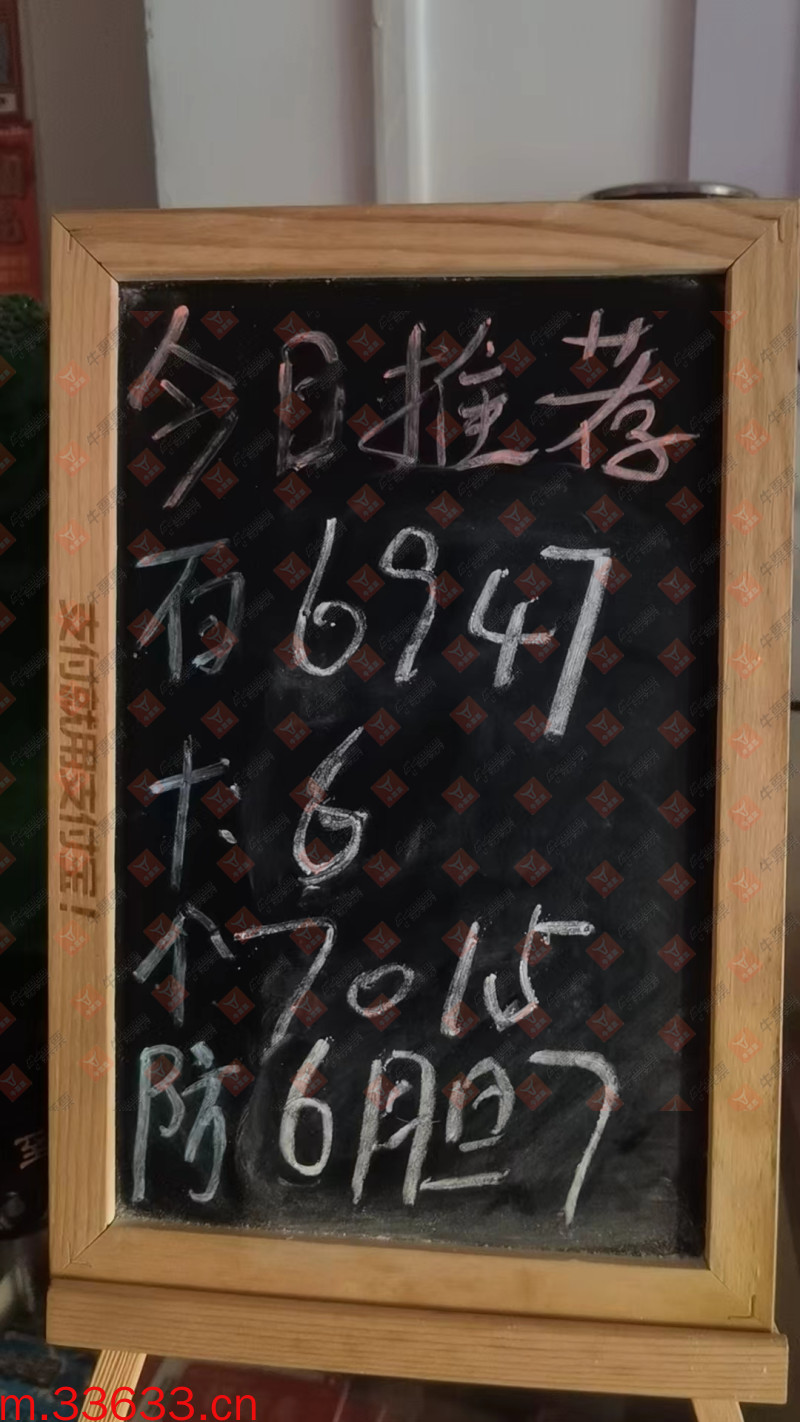 今日推荐
百 6947
十: 6
个 7015
防 6 胆 7
支付就用支付宝!
m.33633.cn